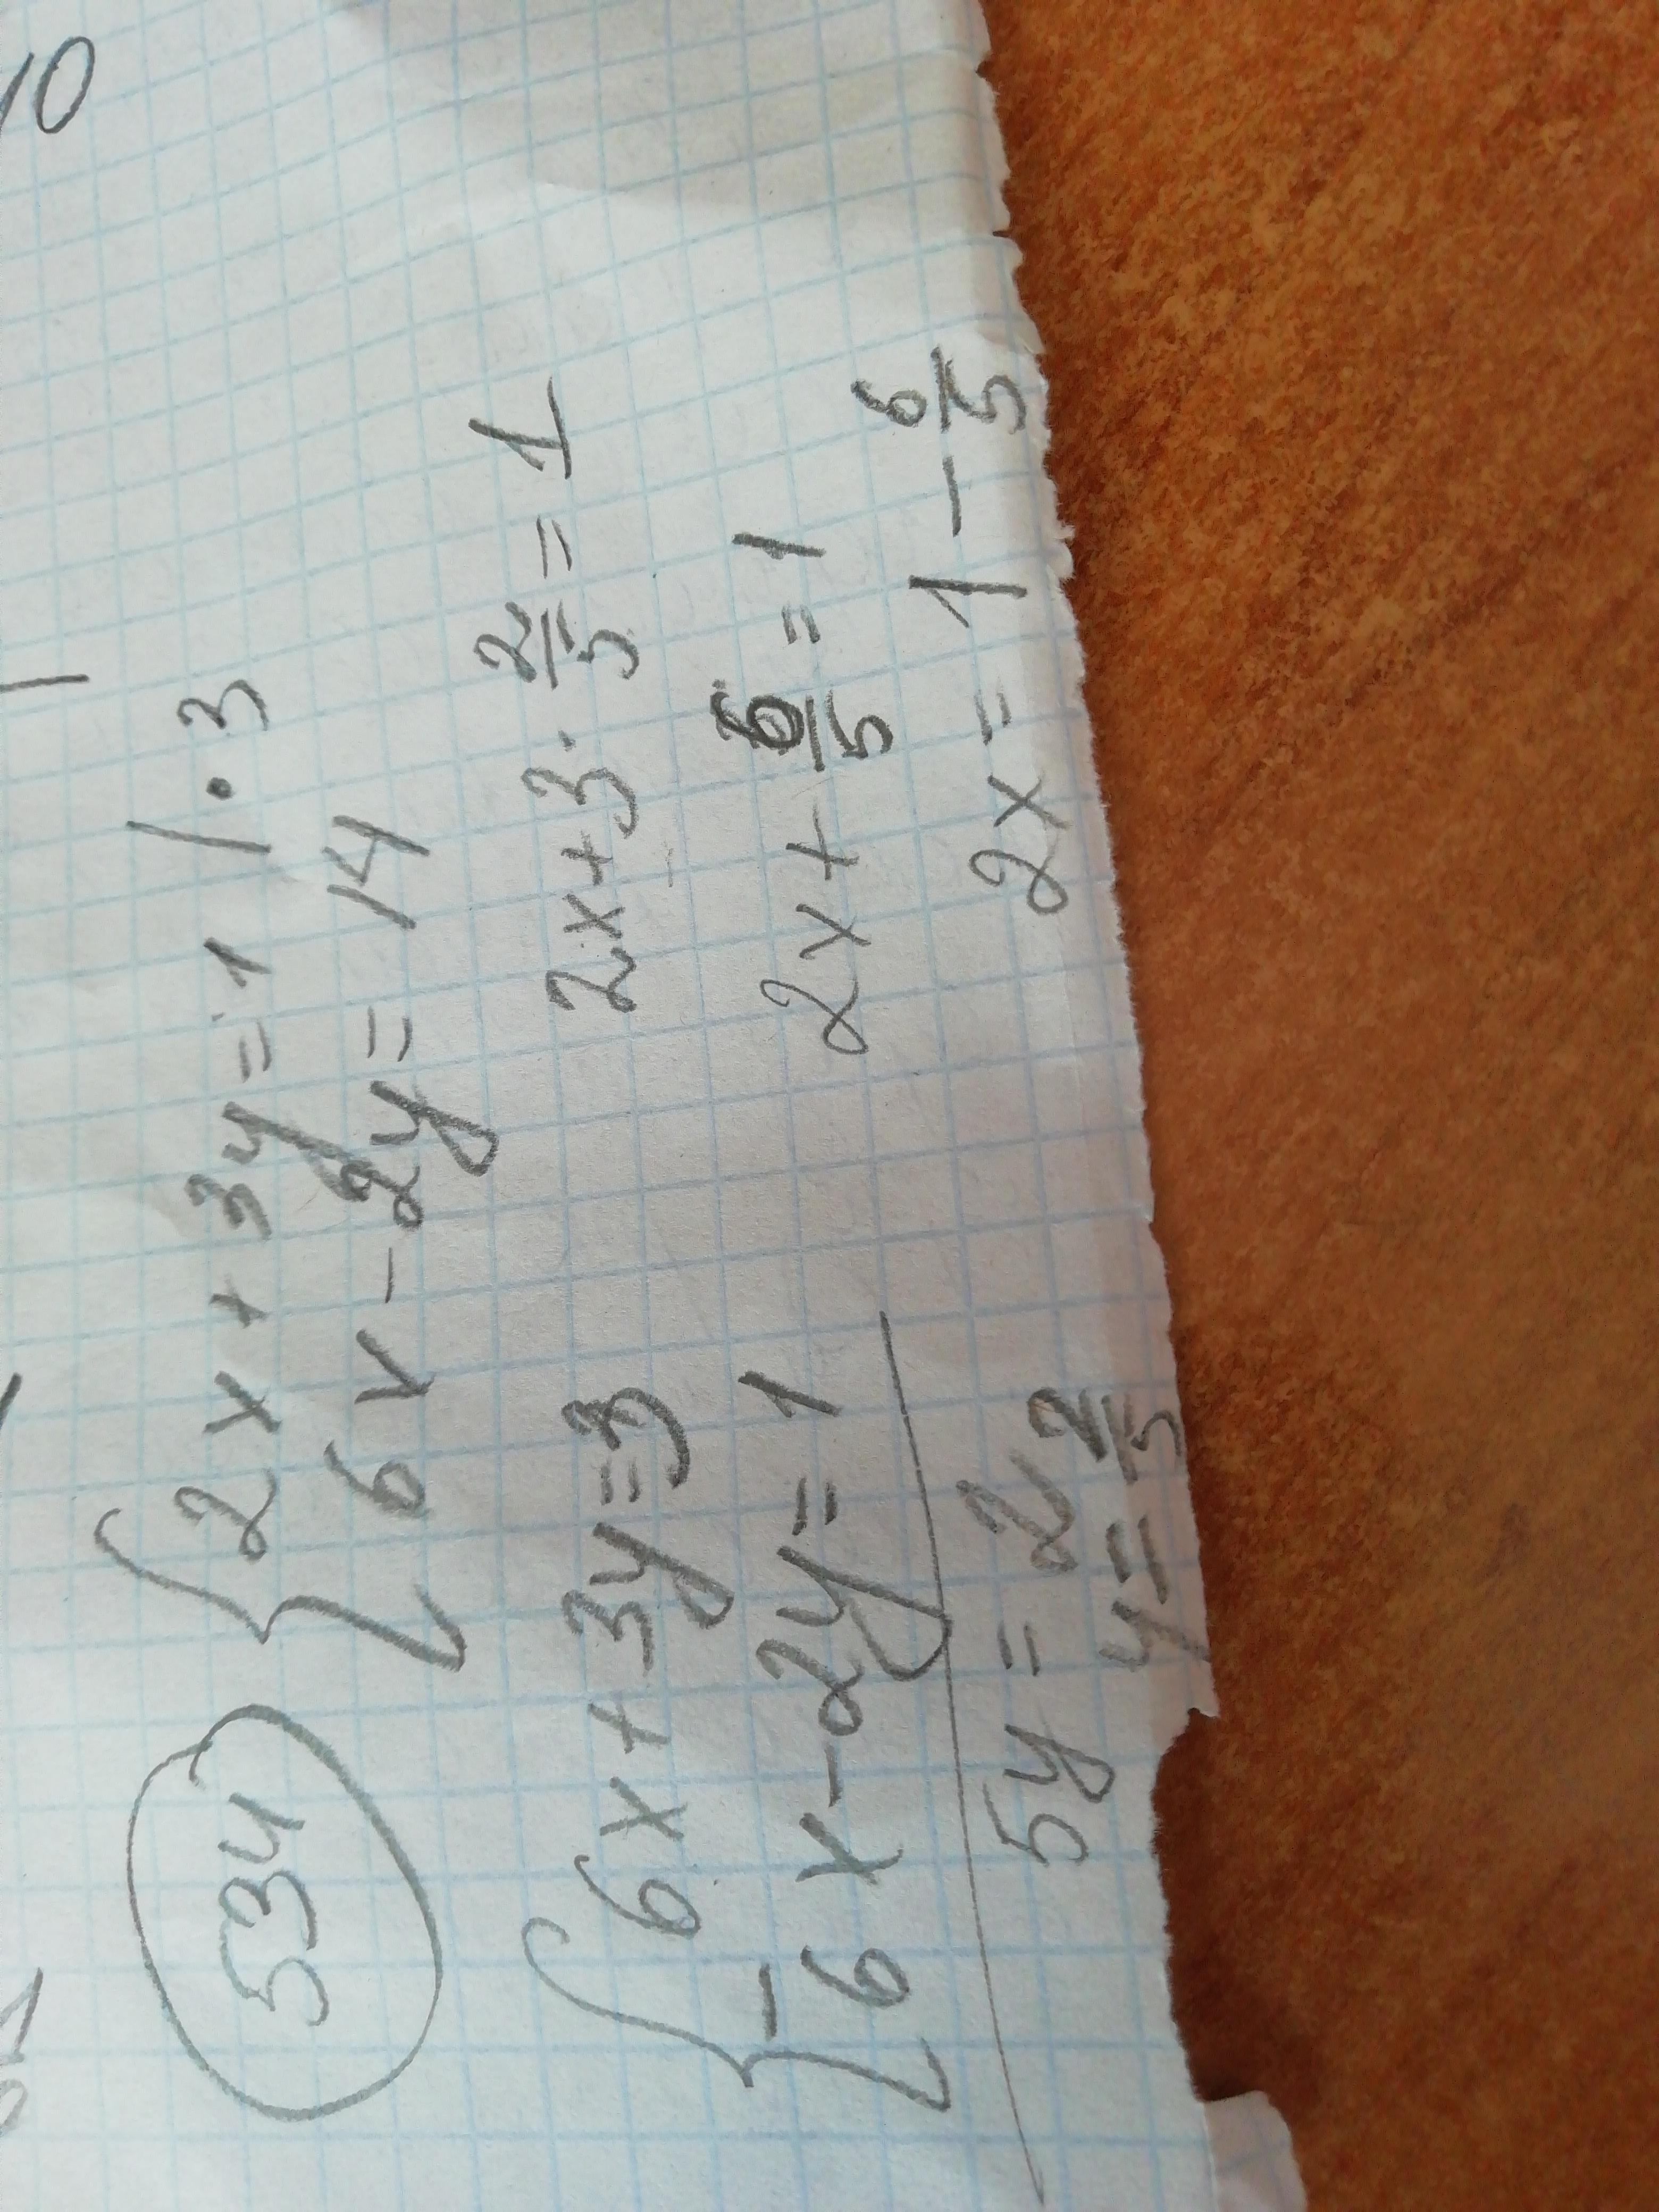 10
534
{2x + 3y = 1 | · 3
6x - 2y = 14
{6x + 3y = 3
- 6x - 2y = 1
5y = 2
y = 2/5
2x + 3 · 2/5 = 1
2x + 6/5 = 1
2x = 1 - 6/5